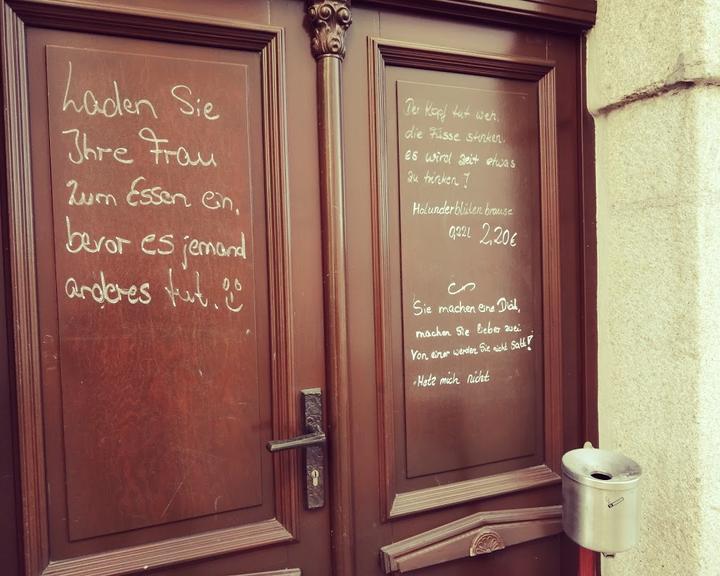 Laden Sie
Ihre Frau
zum Essen ein,
bevor es jemand
anderes tut.
Der Kopf tut weh,
die Füsse stinken,
es wird Zeit etwas
zu trinken!
Holunderblütenbrause
0,22l 2,20€
Sie machen eine Diät,
machen Sie lieber zwei
Von einer werden Sie nicht Satt!
Hetz mich nicht